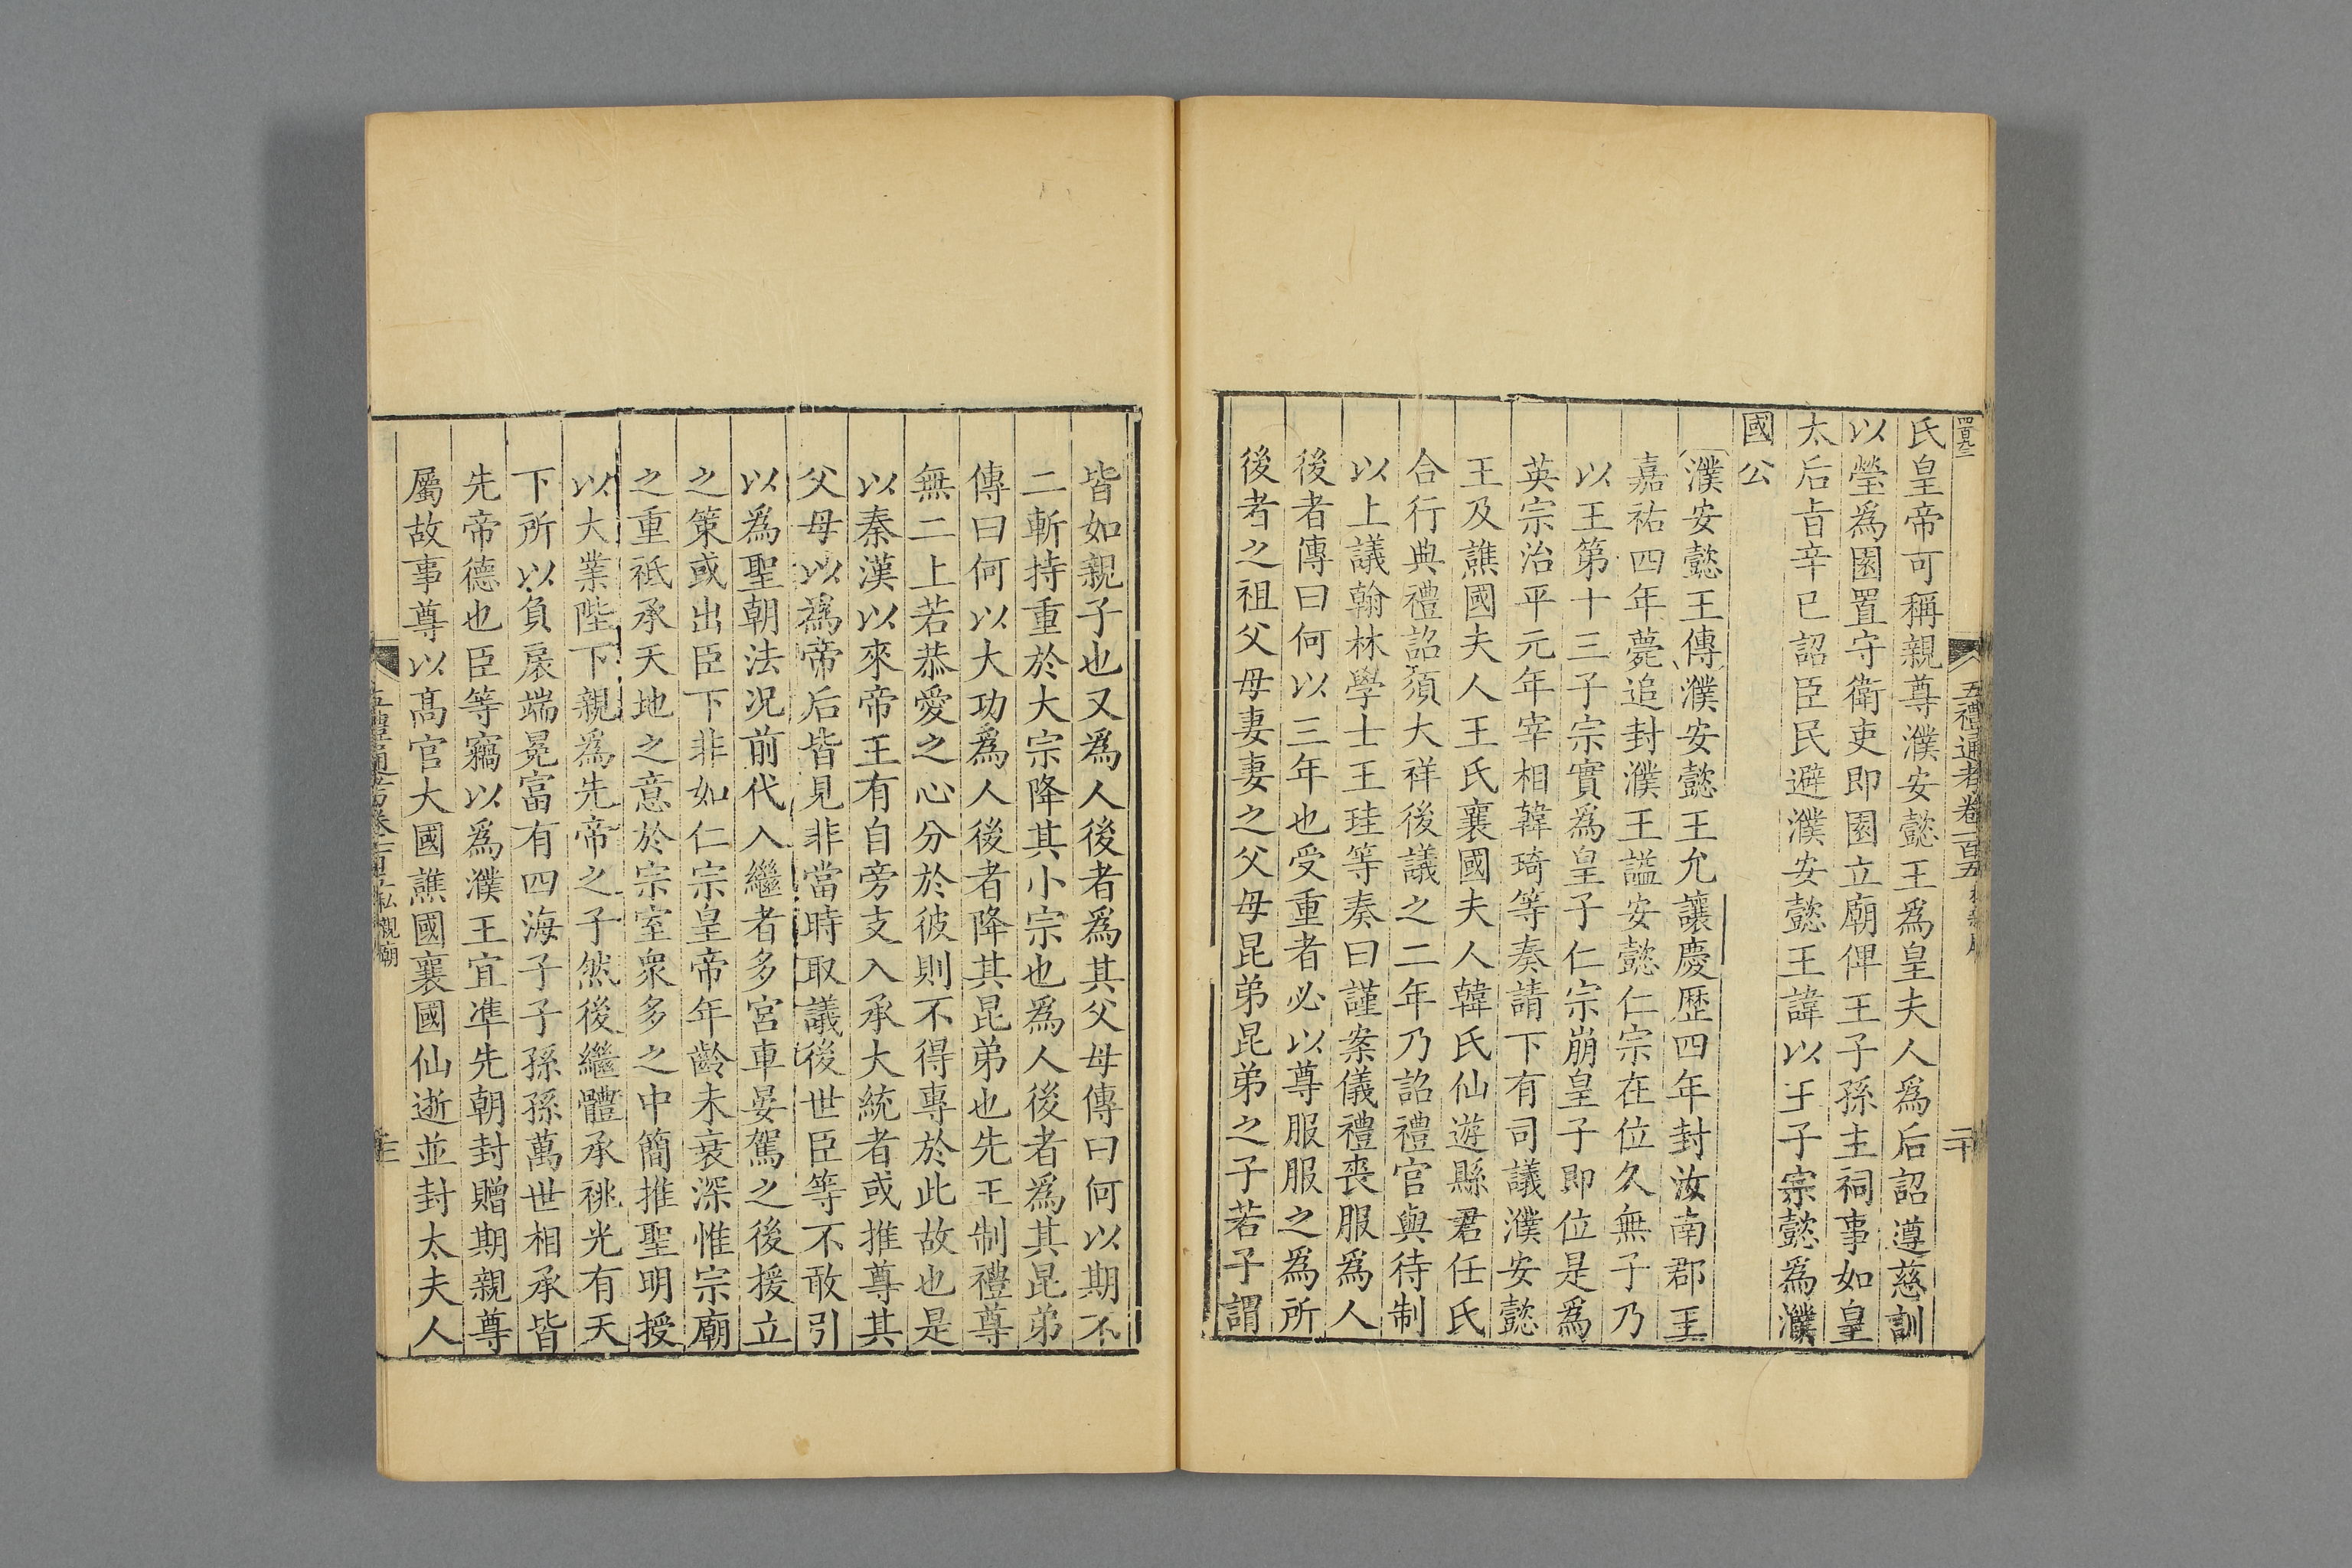 四百九二
五禮通考卷一百五
二十
氏皇帝可稱親尊濮安懿王爲皇夫人爲后詔遵慈訓
以塋爲園置守衛吏即園立廟俾王子孫主祠事如皇
太后㫖辛已詔臣民避濮安懿王諱以王子宗懿爲濮
國公
濮安懿王傳濮安懿王允讓慶歷四年封汝南郡王
嘉祐四年薨追封濮王謚安懿仁宗在位久無子乃
以王第十三子宗實爲皇子仁宗崩皇子即位是爲
英宗治平元年宰相韓琦等奏請下有司議濮安懿
王及譙國夫人王氏襄國夫人韓氏仙遊縣君任氏
合行典禮詔須大祥後議之二年乃詔禮官與待制
以上議翰林學士王珪等奏曰謹案儀禮喪服爲人
後者傳曰何以三年也受重者必以尊服服之爲所
後者之祖父母妻妻之父母昆弟昆弟之子若子謂
皆如親子也又爲人後者爲其父母傳曰何以期不
二斬持重於大宗降其小宗也爲人後者爲其昆弟
傳曰何以大功爲人後者降其昆弟也先王制禮尊
無二上若恭愛之心分於彼則不得專於此故也是
以秦漢以來帝王有自旁支入承大統者或推尊其
父母以爲帝后皆見非當時取議後世臣等不敢引
以爲聖朝法况前代入繼者多宮車晏駕之後援立
之策或出臣下非如仁宗皇帝年齡未衰深惟宗廟
之重祗承天地之意於宗室衆多之中簡推聖明授
以大業陛下親爲先帝之子然後繼體承祧光有天
下所以負扆端冕富有四海子子孫孫萬世相承皆
先帝德也臣等竊以爲濮王宜準先朝封贈期親尊
屬故事尊以高官大國譙國襄國仙逝並封太夫人
五禮通考卷一百五 私親廟